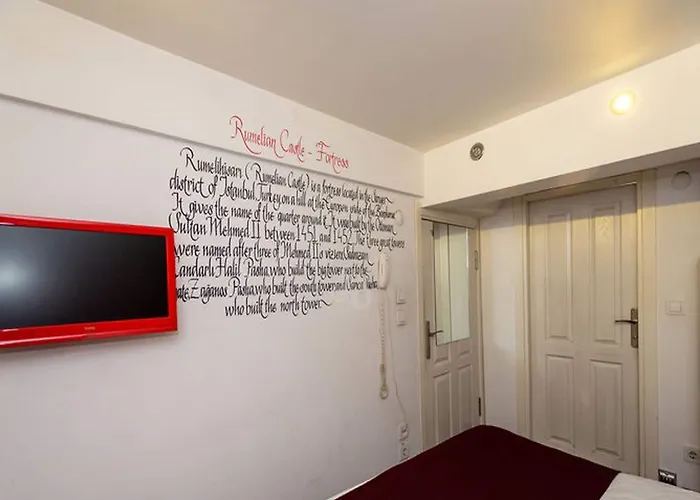 Rumelian Castle - Fortress
Rumelihisarı (Rumelian Castle) is a fortress located in the Sarıyer
district of Istanbul, Turkey on a hill at the European side of the Bosphorus
It gives the name of the quarter around it. It was built by the Ottoman
Sultan Mehmed II between 1451 and 1452. The three great towers
were named after three of Mehmed II's viziers: Sadrazam
Çandarlı Halil Pasha who build the big tower next to the
gate, Zağanos Pasha who built the south tower and Sarıca Pasha
who built the north tower